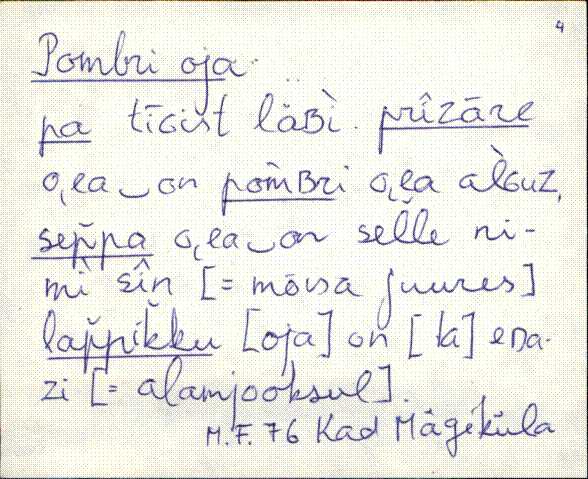 4
Pombri oja
pa tīGist läBì. prîzāre
o̭ea‿on pom̀Bri o̭ea al̀Guz,
sep̆pa o̭ea‿on sel̆le ni-
mì sîn [= mõisa juures]
lap̆pik̆ku [oja] on [ta] eDa-
zi [= alamjooksul].
M.F. 76 Kad Mägéküla